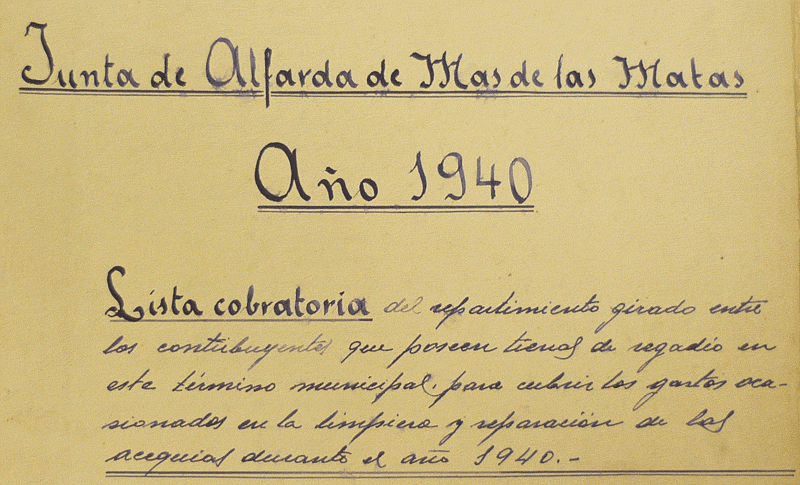 Junta de Alfarda de Mas de las Matas
Año 1940
Lista cobratoria del repartimiento girado entre
los contribuyentes que poseen tierras de regadío en
este término municipal, para cubrir los gastos oca-
sionados en la limpieza y reparación de las
acequias durante el año 1940.-